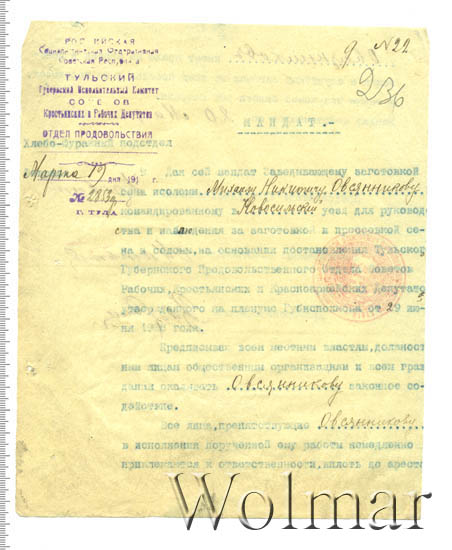 РОССИЙСКАЯ
Социалистическая Федеративная
Советская Республика
ТУЛЬСКИЙ
Губернский Исполнительный Комитет
СОВЕТОВ
Крестьянских и Рабочих Депутатов
ОТДЕЛ ПРОДОВОЛЬСТВИЯ
Хлебо-Фуражный подотдел
Марта 19 дня 191 г.
№ 2853
г. ТУЛА
9 N22
236
МАНДАТ.-
Дан сей мандат Заведывающему заготовкой
сена и соломы Овсянникову
командированному в Новосильский уезд для руководс
ства и наблюдения за заготовкой и прессовкой се-
на и соломы, на основании постановления Тульского
Губернского Продовольственного Отдела Советов
Рабочих, Крестьянских и Красноармейских Депутато
утвержденного на пленуме Губисполкома от 29 ию-
ня 1918 года.
Предписываю всем местным властям, должност
ным лицам общественным организациям и всем граж
данам оказывать Овсянникову законное со-
действие.
Все лица, препятствующие Овсянникову
в исполнении порученной ему работы немедленно
привлекаются к ответственности, вплоть до ареста
Wolmar